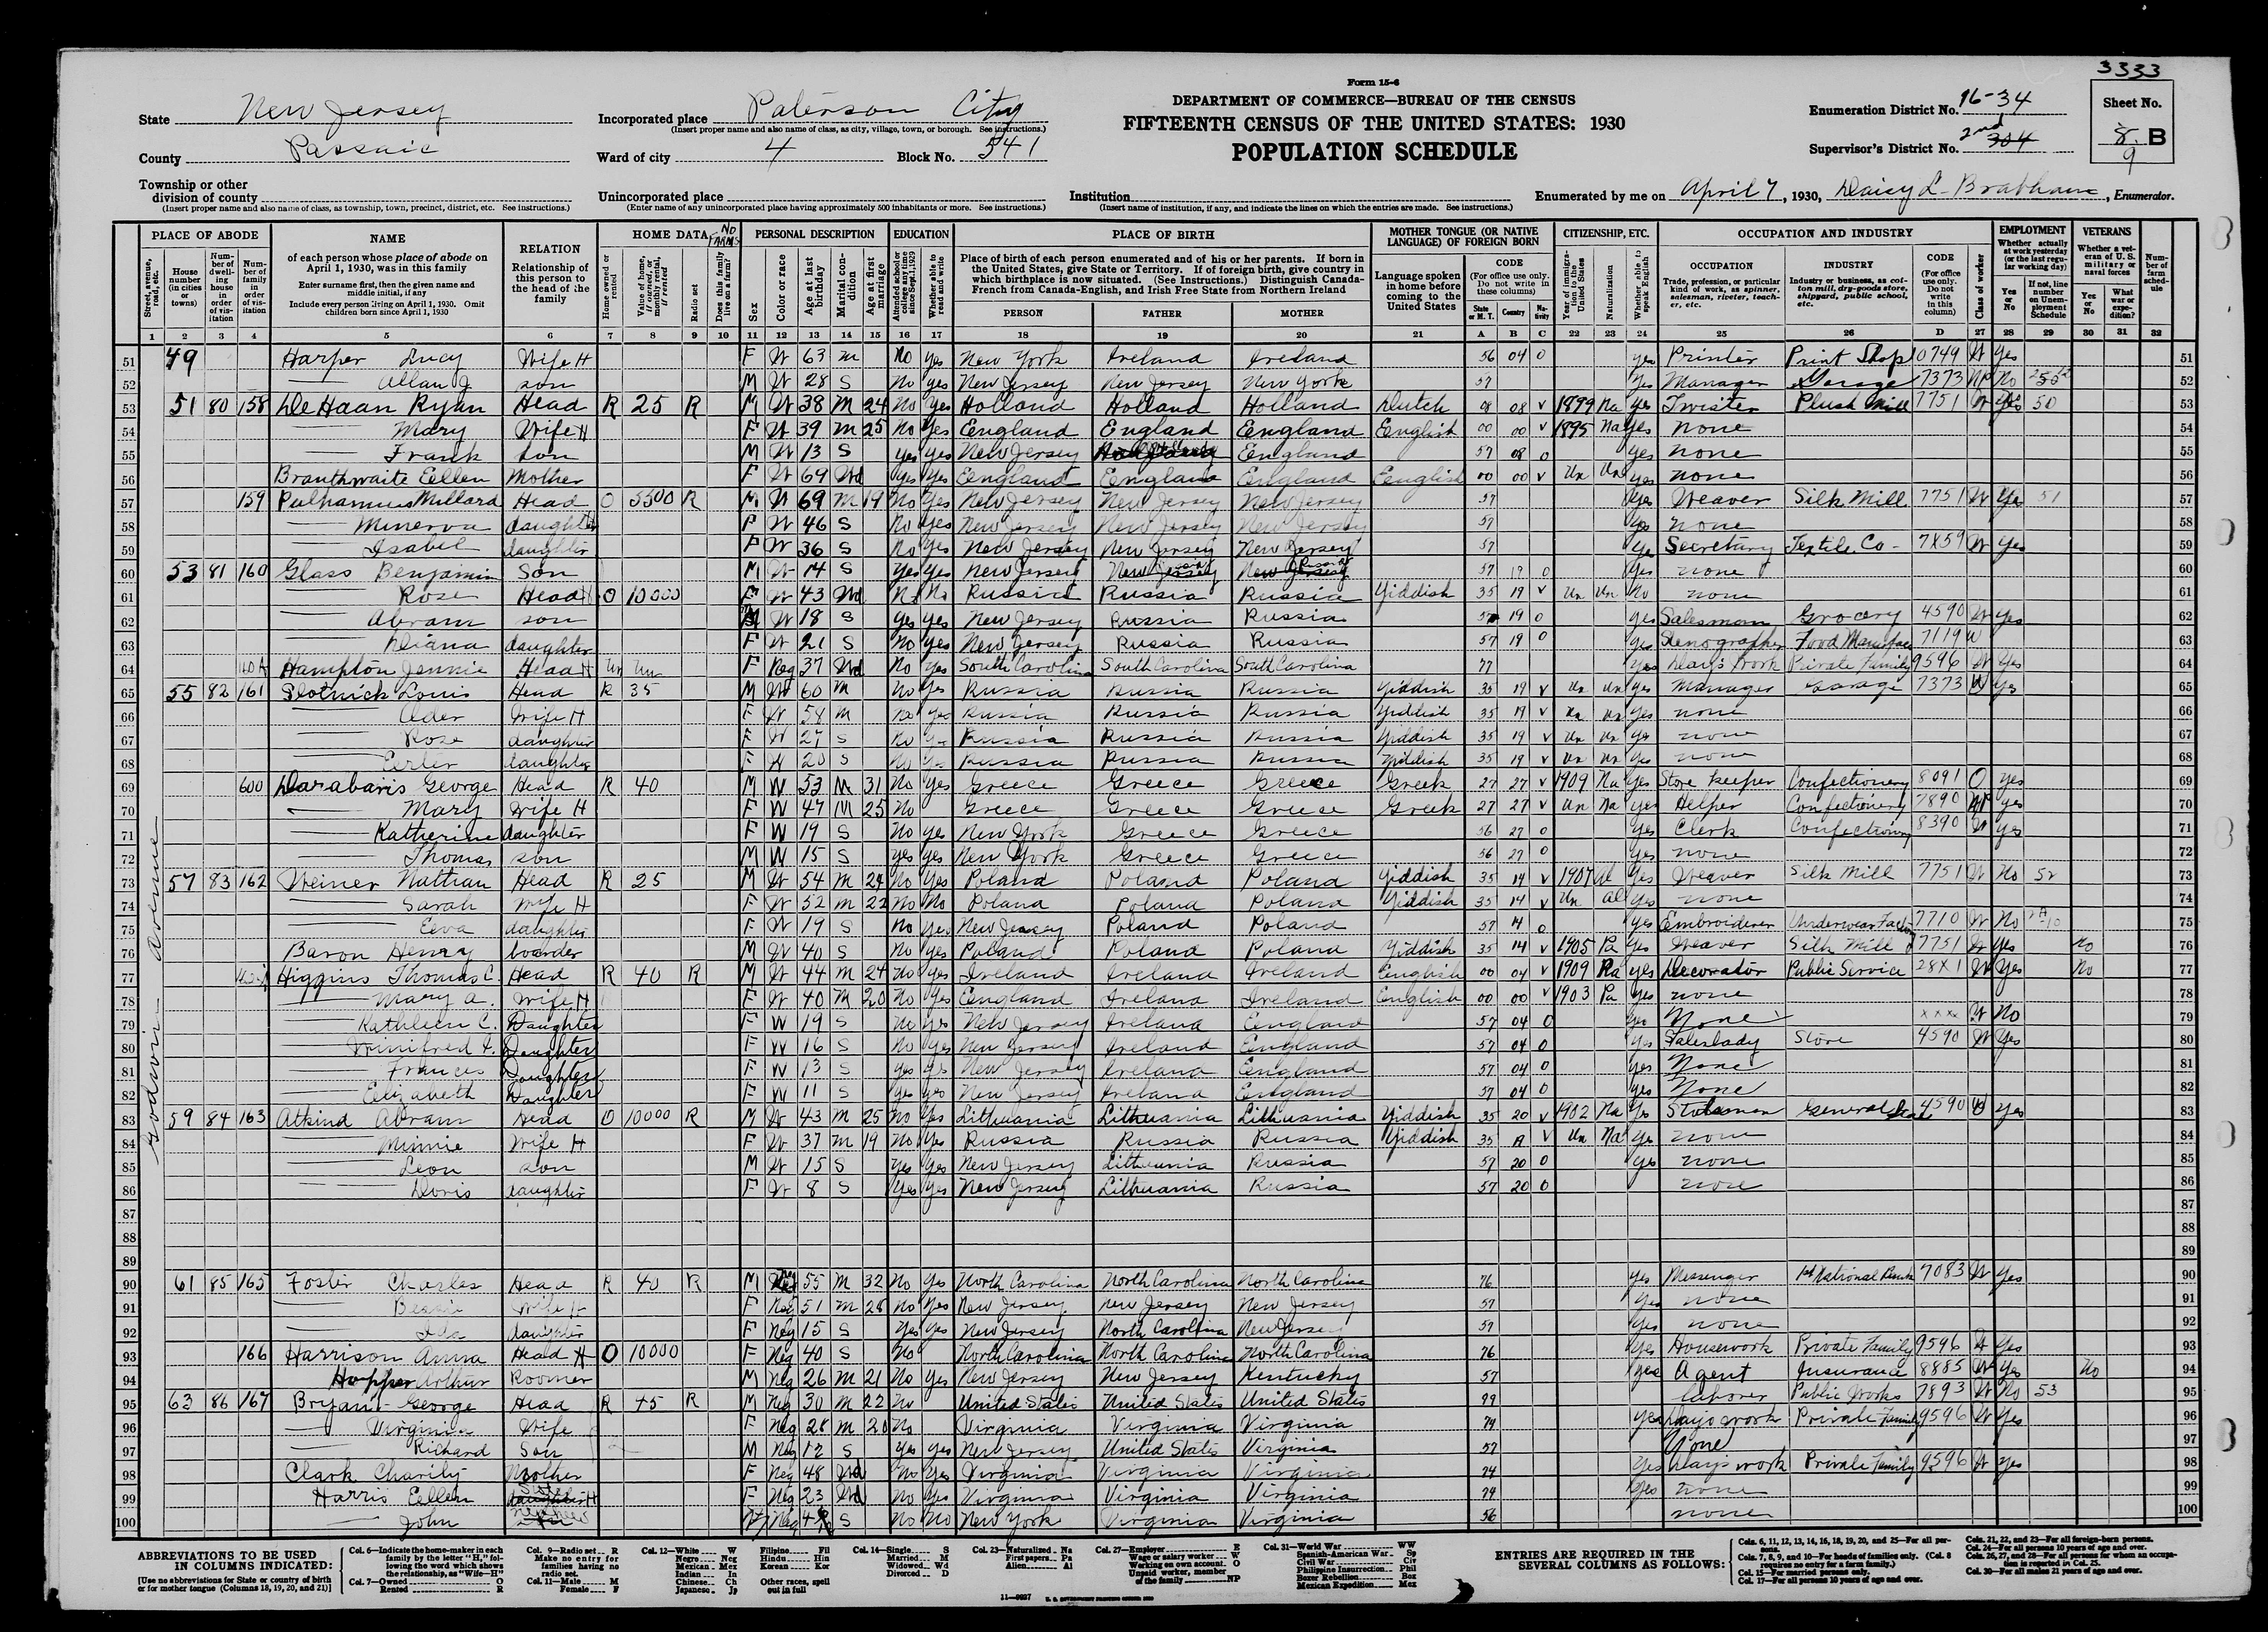 3333
Form 15-6
DEPARTMENT OF COMMERCE—BUREAU OF THE CENSUS
FIFTEENTH CENSUS OF THE UNITED STATES: 1930
POPULATION SCHEDULE
State New Jersey
County Passaic
Township or other division of county
(Insert proper name and also name of class, as township, town, precinct, district, etc. See instructions.)
Incorporated place Paterson City
(Insert proper name and also name of class, as city, village, town, or borough. See instructions.)
Ward of city 4 Block No. 541
Unincorporated place
(Enter name of any unincorporated place having approximately 500 inhabitants or more. See instructions.)
Institution
(Insert name of institution, if any, and indicate the lines on which the entries are made. See instructions.)
Enumeration District No. 16-34
Supervisor's District No. 2nd 304
Sheet No. 8 B
9
Enumerated by me on April 7, 1930, Daisy L. Brabham, Enumerator.
PLACE OF ABODE NAME RELATION HOME DATA NO FARMS PERSONAL DESCRIPTION EDUCATION PLACE OF BIRTH MOTHER TONGUE (OR NATIVE LANGUAGE) OF FOREIGN BORN CITIZENSHIP, ETC. OCCUPATION AND INDUSTRY EMPLOYMENT VETERANS
Godwin Avenue
51 49 Harper Lucy Wife H F W 63 M No Yes New York Ireland Ireland 56 04 0 yes Printer Print Shop 0749 W Yes 51
52 Allan J. son M W 28 S No yes New Jersey New Jersey New York 57 Yes Manager Garage 7373 No 52
53 51 80 158 De Haan Ryan Head R 25 R M W 38 M 24 No Yes Holland Holland Holland Dutch 08 08 V 1899 Na yes Twister Plush Mill 7751 W Yes 50 53
54 Mary Wife H F W 39 M 25 No Yes England England England English 00 00 V 1895 Na yes none 54
55 Frank son M W 13 S yes yes New Jersey England 57 08 0 yes none 55
56 Branthwaite Ellen Mother F W 69 Wd Yes England England England English 00 00 V Un Un yes none 56
57 159 Pulhamus Millard Head O 5500 R M W 69 M 19 No Yes New Jersey New Jersey New Jersey 57 Yes Weaver Silk Mill 7751 W Yes 51 57
58 Minerva daughter F W 46 S No yes New Jersey New Jersey New Jersey 57 Yes none 58
59 Isabel daughter F W 36 S No yes New Jersey New Jersey New Jersey 57 Yes Secretary Textile Co 7X59 W yes 59
60 53 81 160 Glass Benjamin Son M W 14 S Yes yes New Jersey New Jersey New Jersey 57 19 0 yes none 60
61 Rose Head H O 10000 F W 43 Wd No No Russia Russia Russia Yiddish 35 19 V Un Un No none 61
62 Abram son M W 18 S yes yes New Jersey Russia Russia 57 19 0 yes Salesman Grocery 4590 W Yes 62
63 Diana daughter F W 21 S No yes New Jersey Russia Russia 57 19 0 yes Stenographer 7119 W 63
64 Hampton Jennie Head H Un Un F Neg 37 Wd No Yes South Carolina South Carolina South Carolina 77 Yes Days Work Private Family 9596 W Yes 64
65 55 82 161 Slotnick Louis Head R 35 M W 60 M No Yes Russia Russia Russia Yiddish 35 19 V Un Un yes Manager Garage 7373 W Yes 65
66 Wife H F W 58 M No yes Russia Russia Russia Yiddish 35 19 V Un Un yes none 66
67 Rose daughter F W 27 S No Russia Russia Russia Yiddish 35 19 V Un Un Yes none 67
68 daughter F W 20 S No Russia Russia Russia Yiddish 35 19 V Un Un Yes none 68
69 600 Darabaris George Head R 40 M W 53 M 31 No Yes Greece Greece Greece Greek 27 27 V 1909 Na Yes Store keeper Confectionery 8091 O yes 69
70 Mary Wife H F W 47 M 25 No Greece Greece Greece Greek 27 27 V Un Na yes Helper Confectionery 7890 NP yes 70
71 Katherine daughter F W 19 S No yes New York Greece Greece 56 27 0 Yes Clerk Confectionery 8390 W yes 71
72 Thomas son M W 15 S yes yes New York Greece Greece 56 27 0 Yes none 72
73 57 83 162 Weiner Nathan Head R 25 M W 54 M 24 No Yes Poland Poland Poland Yiddish 35 14 V 1907 Al Yes Weaver Silk Mill 7751 W No 52 73
74 Sarah Wife H F W 52 M 22 No No Poland Poland Poland Yiddish 35 14 V Un Al Yes none 74
75 Eva daughter F W 19 S No yes New Jersey Poland Poland 57 14 0 yes Embroiderer Underwear Factory 7710 W No 75
76 Baron Henry boarder M W 40 S No yes Poland Poland Poland Yiddish 35 14 V 1905 Pa Yes Weaver Silk Mill 7751 W Yes No 76
77 Higgins Thomas C. Head R 40 R M W 44 M 24 No Yes Ireland Ireland Ireland English 00 04 V 1909 Pa yes Decorator Public Service 28X1 W Yes No 77
78 Mary A. Wife H F W 40 M 20 No Yes England Ireland Ireland English 00 00 V 1903 Pa yes none 78
79 Kathleen C. Daughter F W 19 S No Yes New Jersey Ireland England 57 04 0 Yes None xxxx W No 79
80 Winifred Daughter F W 16 S No Yes New Jersey Ireland England 57 04 0 Yes Saleslady Store 4590 W Yes 80
81 Frances Daughter F W 13 S yes yes New Jersey Ireland England 57 04 0 yes None 81
82 Elizabeth Daughter F W 11 S yes yes New Jersey Ireland England 57 04 0 yes None 82
83 59 84 163 Atkind Abram Head O 10000 R M W 43 M 25 No Yes Lithuania Lithuania Lithuania Yiddish 35 20 V 1902 Na Yes General 4590 yes 83
84 Minnie Wife H F W 37 M 19 No Yes Russia Russia Russia Yiddish 35 V Un Na Yes none 84
85 Leon son M W 15 S Yes Yes New Jersey Lithuania Russia 57 20 0 yes none 85
86 Doris daughter F W 8 S Yes Yes New Jersey Lithuania Russia 57 20 0 none 86
87 87
88 88
89 89
90 61 85 165 Foster Charles Head R 40 R M Neg 55 M 32 No Yes North Carolina North Carolina North Carolina 76 yes Messenger 1st National Bank 7083 W Yes 90
91 Bessie Wife H F Neg 51 M 28 No Yes New Jersey New Jersey New Jersey 57 Yes none 91
92 Ida daughter F Neg 15 S Yes Yes New Jersey North Carolina New Jersey 57 Yes none 92
93 166 Harrison Anna Head H O 10000 F Neg 40 S No North Carolina North Carolina North Carolina 76 Yes Housework Private Family 9596 W Yes 93
94 Hopper Arthur Roomer M Neg 26 M 21 No Yes New Jersey New Jersey Kentucky 57 yes Agent Insurance 8885 W Yes No 94
95 63 86 167 Bryant George Head R 45 R M Neg 30 M 22 No United States United States United States 99 laborer Public Works 7893 W No 53 95
96 Virginia Wife F Neg 28 M 20 No Virginia Virginia Virginia 74 yes Days work Private Family 9596 W Yes 96
97 Richard Son M Neg 12 S Yes yes New Jersey United States Virginia 57 None 97
98 Clark Charity Mother F Neg 48 Wd No Yes Virginia Virginia Virginia 74 Yes Days work Private Family 9596 W yes 98
99 Harris Ellen F Neg 23 Wd No Yes Virginia Virginia Virginia 74 Yes none 99
100 John Neg S No No New York Virginia Virginia 56 none 100
ABBREVIATIONS TO BE USED IN COLUMNS INDICATED:
[Use no abbreviations for State or country of birth or for mother tongue (Columns 18, 19, 20, and 21)]
Col. 6—Indicate the home-maker in each family by the letter "H," following the word which shows the relationship, as "Wife—H"
Col. 7—Owned O Rented R
Col. 9—Radio set R Make no entry for families having no radio set.
Col. 11—Male M Female F
Col. 12—White W Negro Neg Mexican Mex Indian In Chinese Ch Japanese Jp Filipino Fil Hindu Hin Korean Kor Other races, spell out in full
Col. 14—Single S Married M Widowed Wd Divorced D
Col. 23—Naturalized Na First papers Pa Alien Al
Col. 27—Employer E Wage or salary worker W Working on own account O Unpaid worker, member of the family NP
Col. 31—World War WW Spanish-American War Sp Civil War Civ Philippine Insurrection Phil Boxer Rebellion Box Mexican Expedition Mex
ENTRIES ARE REQUIRED IN THE SEVERAL COLUMNS AS FOLLOWS:
Cols. 6, 11, 12, 13, 14, 16, 18, 19, 20, and 25—For all persons.
Cols. 7, 8, 9, and 10—For heads of families only. (Col. 8 requires no entry for a farm family.)
Col. 15—For married persons only.
Col. 17—For all persons 10 years of age and over.
Cols. 21, 22, and 23—For all foreign-born persons.
Col. 24—For all persons 10 years of age and over.
Cols. 26, 27, and 28—For all persons for whom an occupation is reported in Col. 25.
Col. 30—For all males 21 years of age and over.
11—9937